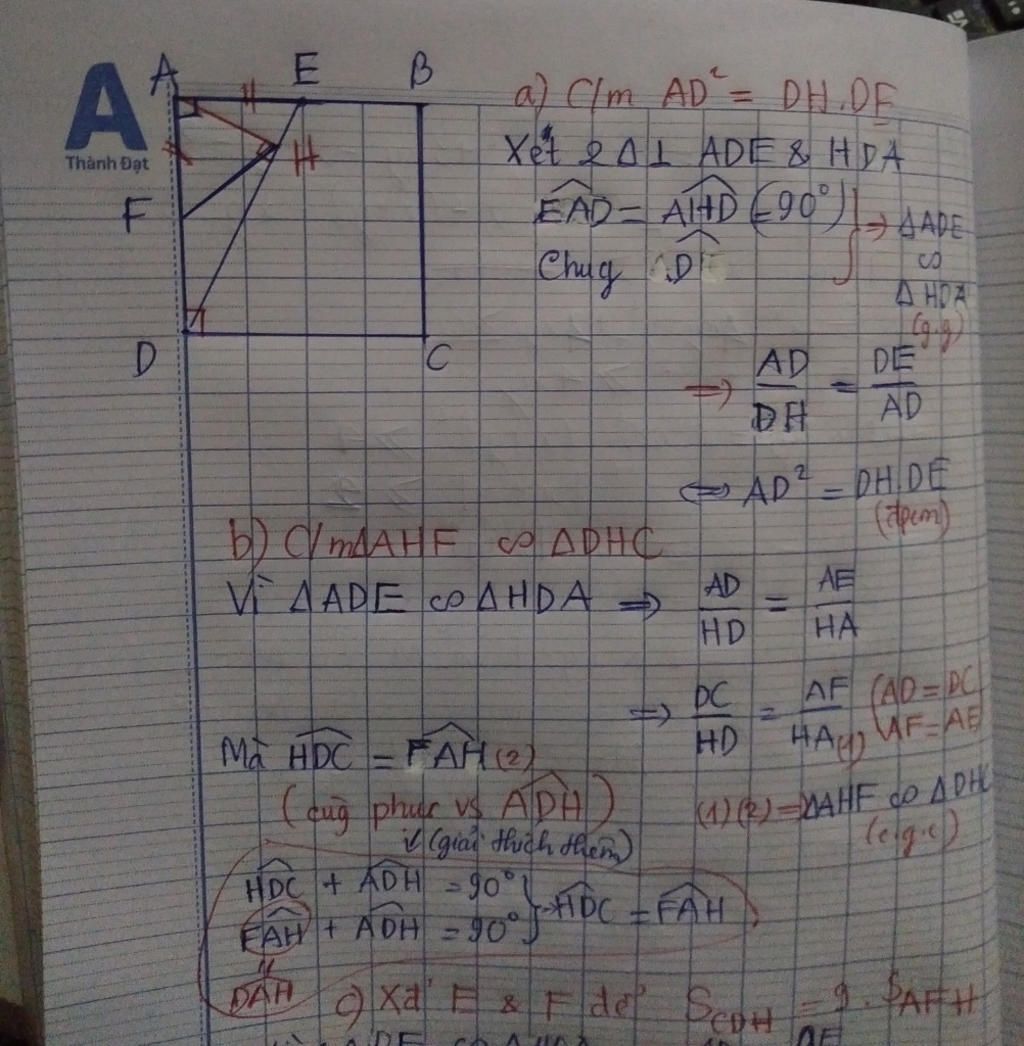 A E B
A
Thành Đạt
H
F
D C
a) C/m AD² = DH.DE
Xét 2 Δ⊥ ADE & HDA
EAD = AHD (=90°)
Chug ADE
⇒ ΔADE
∽
ΔHDA
(g.g)
⇒ AD/DH = DE/AD
⇔ AD² = DH.DE
(đpcm)
b) C/m ΔAHF ∽ ΔDHC
Vì ΔADE ∽ ΔHDA ⇒ AD/HD = AE/HA
⇒ DC/HD = AF/HA (1) (AD = DC
AF = AE
Mà HDC = FAH (2)
(cùg phục vs ADH)
(1)(2) ⇒ ΔAHF ∽ ΔDHC
(c.g.c)
(giải thích thêm)
HDC + ADH = 90°
FAH + ADH = 90°
⇒ HDC = FAH
DAH
c) Xđ E & F để S_CDH = 9. S_AFH